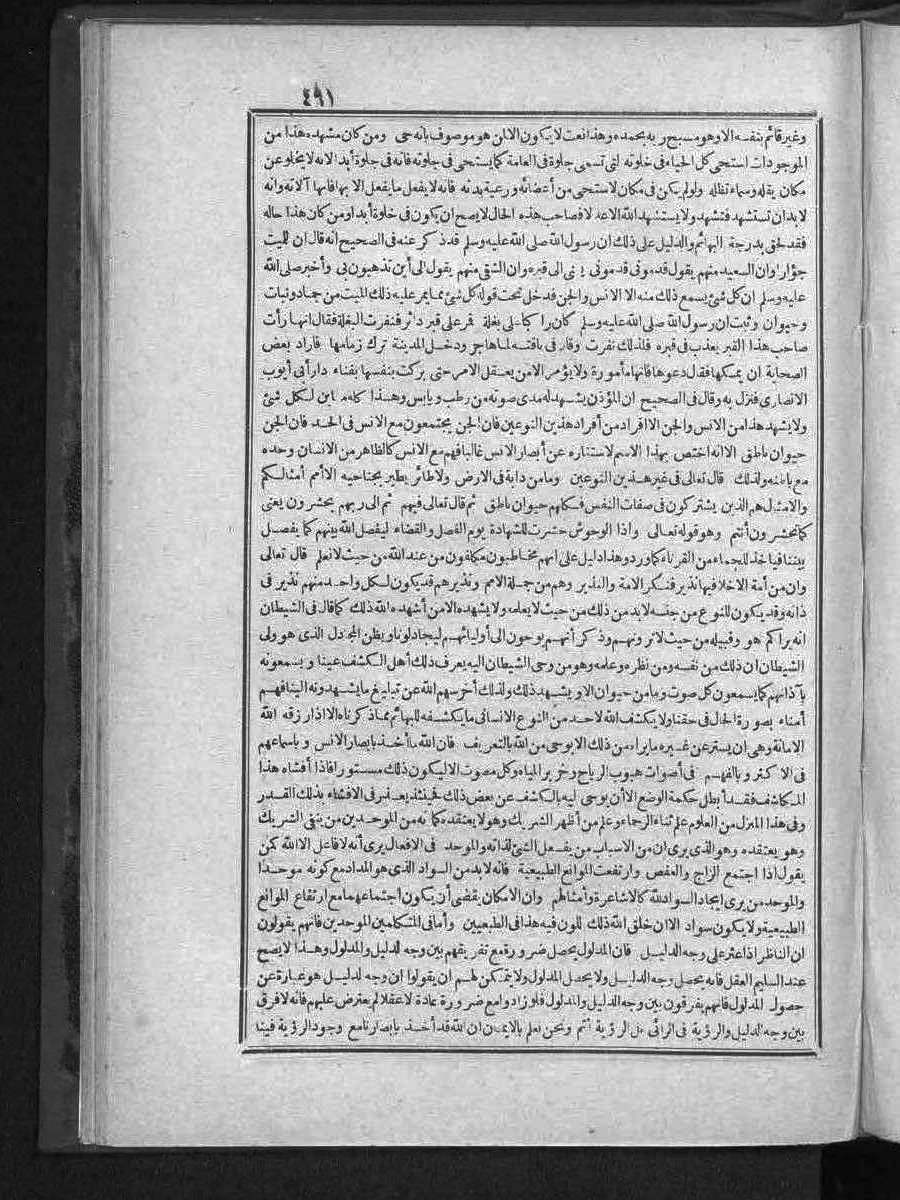 ٤٩١
وغير قائم بنفسه الا وهو مسبح ربه بحمده وهذا نعت لا يكون الا لمن هو موصوف بأنه حى ومن كان مشهده هذا من
الموجودات استحى كل الحياء فى خلوته التى تسمى جلوة فى العامة كما يستحى فى جلوته فانه فى جلوة أبدا لانه لا يخلو عن
مكان يقله وسماء تظله ولو لم يكن فى مكان لاستحى من أعضائه ورعية بدنه فانه لا يفعل ما يفعل الا بها فانها آلاته وانه
لابد ان تستشهد فتشهد ولا يستشهد الله الا عدلا فصاحب هذه الحال لا يصح ان يكون فى خلوة أبدا ومن كان هذا حاله
فقد لحق بدرجة البهائم والدليل على ذلك ان رسول الله صلى الله عليه وسلم قد ذكر عنه فى الصحيح انه قال ان للميت
جؤارا وان السعيد منهم يقول قدمونى قدمونى يعنى الى قبره وان الشقى منهم يقول الى أين تذهبون بى وأخبر صلى الله
عليه وسلم ان كل شئ يسمع ذلك منه الا الانس والجن فدخل تحت قوله كل شئ مما يمر عليه ذلك الميت من جماد ونبات
وحيوان وثبت ان رسول الله صلى الله عليه وسلم كان راكبا على بغلة فمر على قبر دائر فنفرت البغلة فقال انها رأت
صاحب هذا القبر يعذب فى قبره فلذلك نفرت وقال فى ناقته لما هاجر ودخل المدينة ترك زمامها فاراد بعض
الصحابة ان يمسكها فقال دعوها فانها مأمورة ولا يؤمر الا من يعقل الامر حتى بركت بنفسها بفناء دار أبى أيوب
الانصارى فنزل به وقال فى الصحيح ان المؤذن يشهد له مدى صوته من رطب ويابس وهذا كله مباين لكل شئ
ولا يشهد هذا من الانس والجن الا افراد من أفراد هذين النوعين فان الجن يجتمعون مع الانس فى الحد فان الجن
حيوان ناطق الا انه اختص بهذا الاسم لاستتاره عن أبصار الانس غالبا فهم مع الانس كالظاهر من الانسان وحده
مع باطنه ولذلك قال تعالى فى غير هذين النوعين وما من دابة فى الارض ولا طائر يطير بجناحيه الا أمم أمثالكم
والامثال هم الذين يشتركون فى صفات النفس فكلهم حيوان ناطق ثم قال تعالى فيهم ثم الى ربهم يحشرون يعنى
كما تحشرون أنتم وهو قوله تعالى واذا الوحوش حشرت للشهادة يوم الفصل والقضاء ليفصل الله بينهم كما يفصل
بيننا فيأخذ للجماء من القرناء كما ورد وهذا دليل على انهم مخاطبون مكلفون من عند الله من حيث لا نعلم قال تعالى
وان من أمة الا خلا فيها نذير فنكر الامة والنذير وهم من جملة الامم ونذيرهم قد يكون لكل واحد منهم نذير فى
ذاته وقد يكون للنوع من جنسه لابد من ذلك من حيث لا يعلمه ولا يشهده الا من أشهده الله ذلك كما قال فى الشيطان
انه يراكم هو وقبيله من حيث لا ترونهم وذكر أنهم يوحون الى أوليائهم ليجادلونا ويظن المجادل الذى هو ولى
الشيطان ان ذلك من نفسه ومن نظره وعلمه وهو من وحى الشيطان اليه يعرف ذلك أهل الكشف عينا ويسمعونه
بآذانهم كما يسمعون كل صوت وما من حيوان الا ويشهد ذلك ولذلك أخرسهم الله عن تبليغ ما يشهدونه الينا فهم
أمناء بصورة الحال فى حقنا ولا يكشف الله لاحد من النوع الانسانى ما يكشفه للبهائم مما ذكرناه الا اذا رزقه الله
الامانة وهى ان يستر عن غيره ما يراه من ذلك الا بوحى من الله بالتعريف فان الله ما أخذ بابصار الانس وباسماعهم
فى الاكثر وبالفهم فى أصوات هبوب الرياح وخرير المياه وكل مصوت الا ليكون ذلك مستورا فاذا أفشاه هذا
المكاشف فقد أبطل حكمة الوضع الا أن يوحى اليه بالكشف عن بعض ذلك فحينئذ يعتبر فى الافشاء بذلك القدر
وفى هذا المنزل من العلوم علم ثناء الرحماء وعلم من أظهر الشريك وهو لا يعتقده كما نه من الموحدين من ينفى الشريك
وهو يعتقده وهو الذى يرى ان من الاسباب من يفعل الشئ لذاته والموحد فى الافعال يرى أنه لا فاعل الا الله كمن
يقول اذا اجتمع الزاج والعفص وارتفعت الموانع الطبيعية فانه لابد من السواد الذى هو المداد مع كونه موحدا
والموحد من يرى ايجاد السواد لله كالاشاعرة وأمثالهم وان الامكان يقضى أن يكون اجتماعهما مع ارتفاع الموانع
الطبيعية ولا يكون سواد الا ان خلق الله ذلك للون فيه هذا فى الطبعيين وأما فى المتكلمين الموحدين فانهم يقولون
ان الناظر اذا عثر على وجه الدليل فان المدلول يحصل ضرورة مع تفريقهم بين وجه الدليل والمدلول وهذا لا يصح
عند السليم العقل فانه يحصل وجه الدليل ولا يحصل المدلول ولا يتمكن لهم ان يقولوا ان وجه لدليل هو عبارة عن
حصول المدلول فانهم يفرقون بين وجه الدليل والمدلول فلو زادوا مع ضرورة عادة لا عقلا لم يعترض عليهم فانه لا فرق
بين وجه الدليل والرؤية فى الرائى بل الرؤية أتم ونحن نعلم بالايمان ان الله قد أخذ بابصارنا مع وجود الرؤية فينا